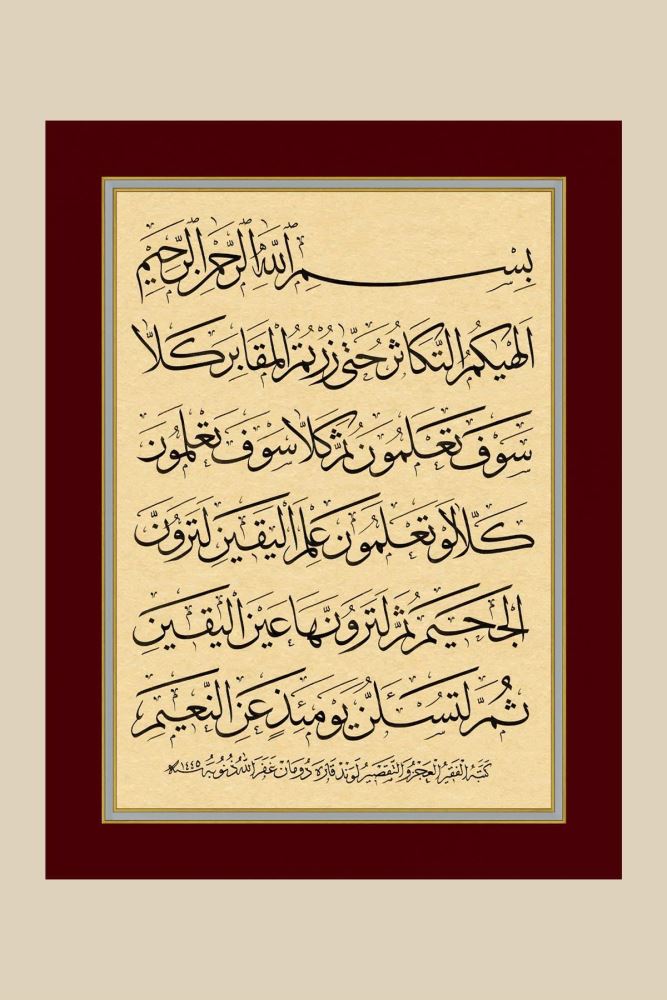 بِسْمِ اللّٰهِ الرَّحْمٰنِ الرَّحِيْمِ
اَلْهٰيكُمُ التَّكَاثُرُ حَتّٰى زُرْتُمُ الْمَقَابِرَ كَلَّا
سَوْفَ تَعْلَمُونَ ثُمَّ كَلَّا سَوْفَ تَعْلَمُونَ
كَلَّا لَوْ تَعْلَمُونَ عِلْمَ الْيَقِينِ لَتَرَوُنَّ
الْجَحِيمَ ثُمَّ لَتَرَوُنَّهَا عَيْنَ الْيَقِينِ
ثُمَّ لَتُسْأَلُنَّ يَوْمَئِذٍ عَنِ النَّعِيمِ
كتبه الفقير العجز والتقصير لوند قاره دومان غفر الله ذنوبه سنة ١٤٤٥